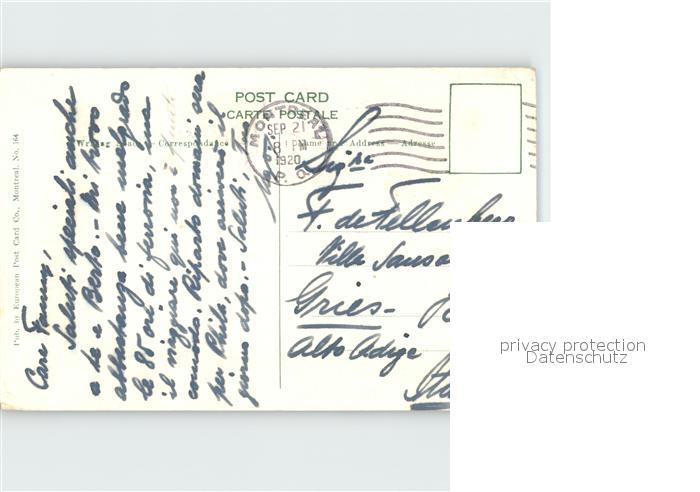 POST CARD
CARTE POSTALE
Writing Space — Correspondance
Name and Address — Adresse
MONTREAL
SEP 21
8 PM
1920
P. Q.
Pub. by European Post Card Co., Montreal, No. 164
Care Fanny,
Saluti speciali anche
a te e Berto. — Mi trovo
abbastanza bene malgrado
le 85 ore di ferrovia, ma
il viaggiare qui non è
comodo. Riparto domani sera
per Phila, dove arriverò il
giorno dopo. — Saluti, tuo
Sig.ra
F. de Fellenberg
Villa Sanso
Gries —
Alto Adige
privacy protection
Datenschutz